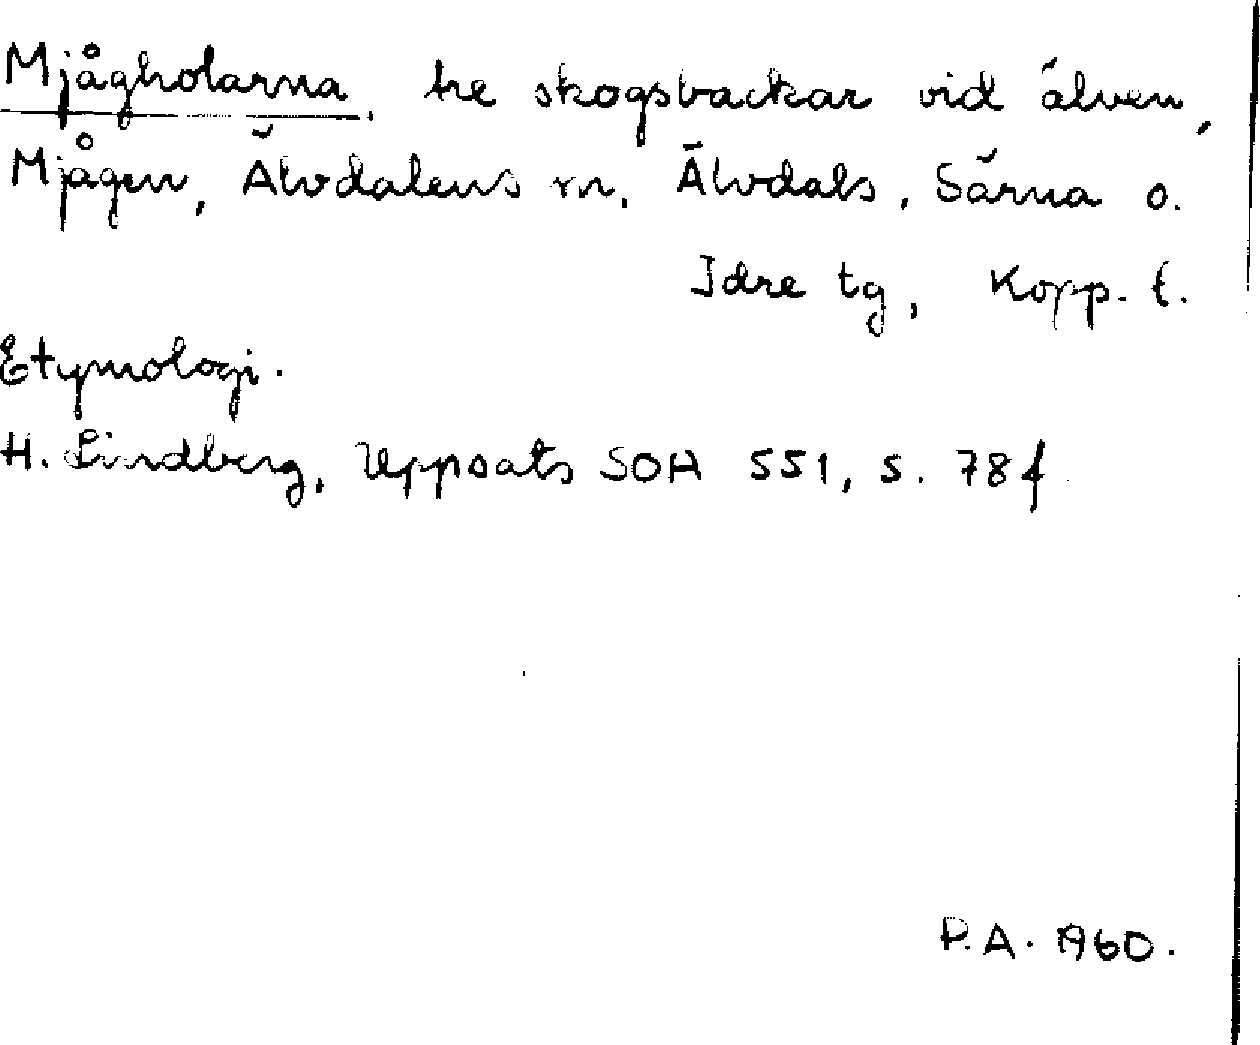 Mjågholarna, tre skogsbackar vid älven,
Mjågen, Älvdalens sn, Älvdals, Särna o.
Idre tg, Kopp. l.
Etymologi.
H. Lindberg, Uppsats SOA 551, s. 78 f
P.A. 1960.